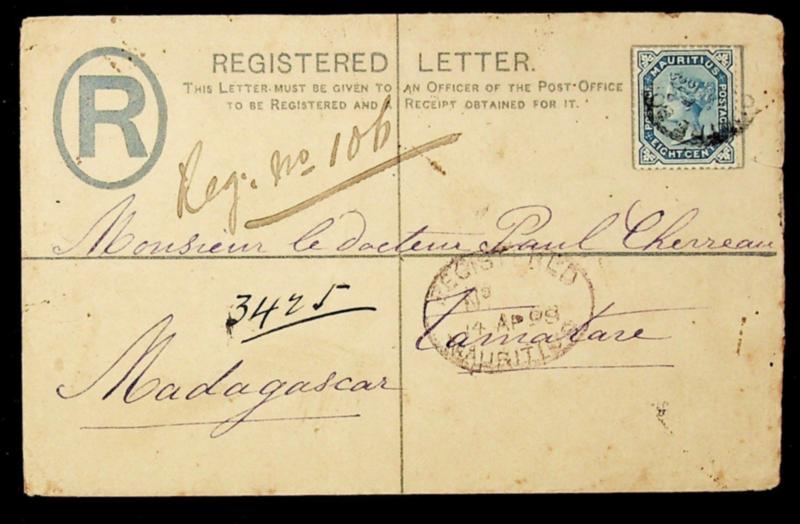 R
REGISTERED LETTER.
THIS LETTER MUST BE GIVEN TO AN OFFICER OF THE POST OFFICE
TO BE REGISTERED AND A RECEIPT OBTAINED FOR IT.
MAURITIUS
POSTAGE
EIGHT CEN
Reg. No 106
Monsieur le docteur Paul Cherreau
REGISTERED
No
14 AP 98
MAURITIUS
3425
Tamatave
Madagascar